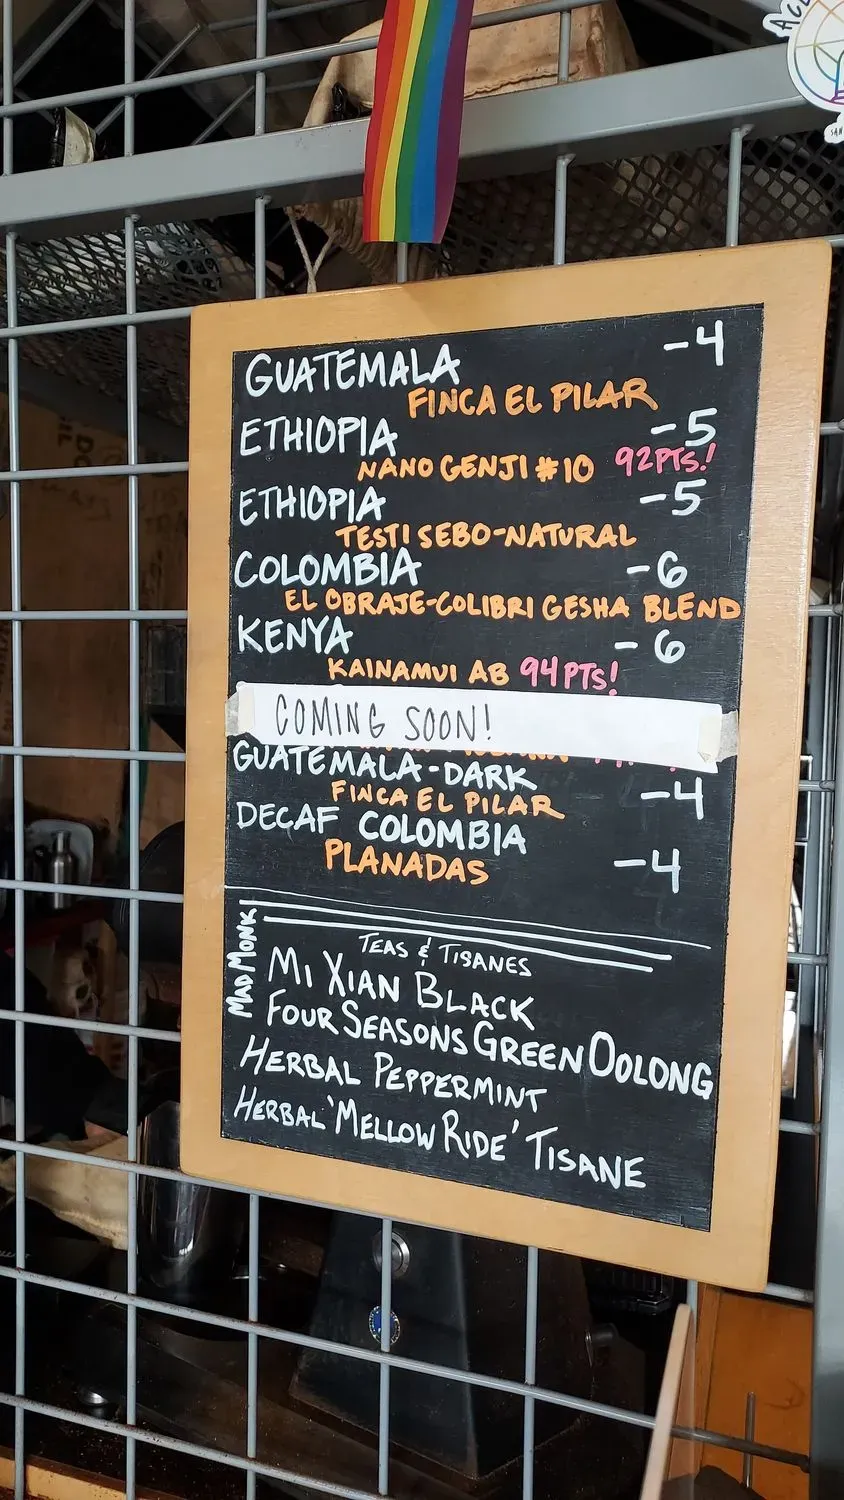 GUATEMALA -4
FINCA EL PILAR
ETHIOPIA -5
NANO GENJI #10 92PTS!
ETHIOPIA -5
TESTI SEBO-NATURAL
COLOMBIA -6
EL OBRAJE-COLIBRI GESHA BLEND
KENYA -6
KAINAMUI AB 94PTS!
COMING SOON!
GUATEMALA-DARK -4
FINCA EL PILAR
DECAF COLOMBIA -4
PLANADAS
MAD MONK
TEAS & TISANES
MI XIAN BLACK
FOUR SEASONS GREEN OOLONG
HERBAL PEPPERMINT
HERBAL 'MELLOW RIDE' TISANE